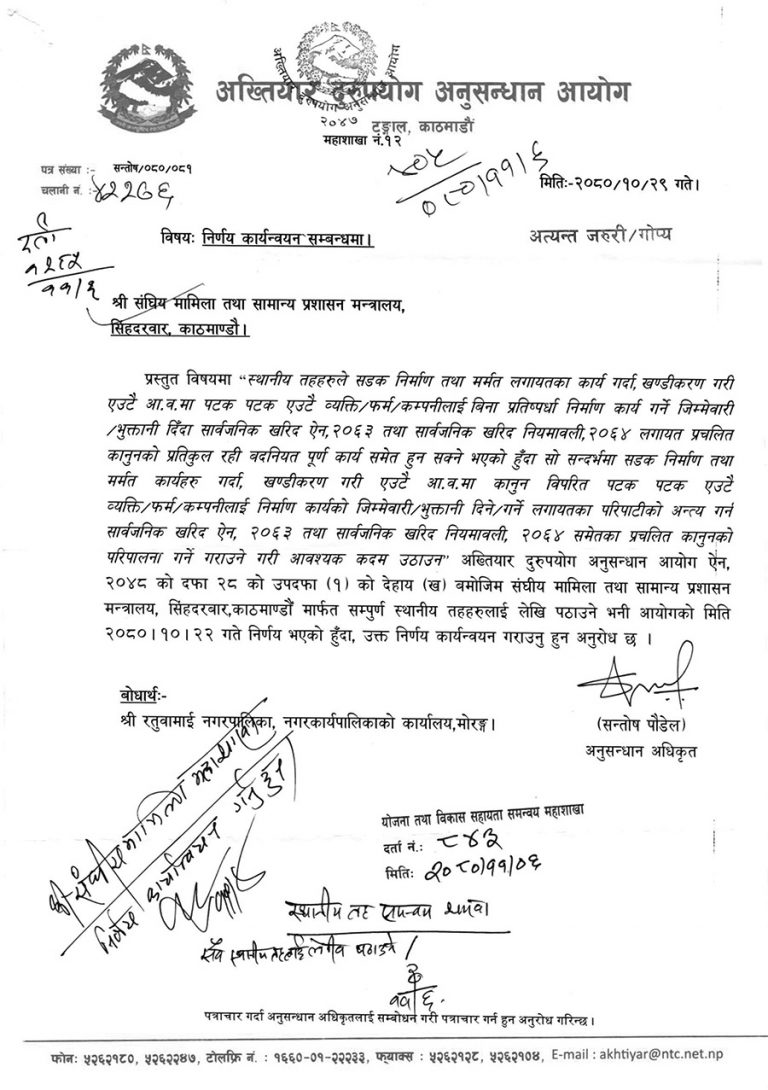 अख्तियार दुरुपयोग अनुसन्धान आयोग
अख्तियार दुरुपयोग अनुसन्धान आयोग
२०४७
टङ्गाल, काठमाडौं
महाशाखा नं.१२
पत्र संख्या :- सन्तोष/०८०/०८१
चलानी नं. :- ४२२७६
०८०/११/६
मितिः-२०८०/१०/२९ गते।
दर्ता
११/६
विषयः निर्णय कार्यन्वयन सम्बन्धमा।
अत्यन्त जरुरी/गोप्य
श्री संघिय मामिला तथा सामान्य प्रशासन मन्त्रालय,
सिंहदरवार, काठमाण्डौ।
प्रस्तुत विषयमा "स्थानीय तहहरुले सडक निर्माण तथा मर्मत लगायतका कार्य गर्दा, खण्डीकरण गरी
एउटै आ.व.मा पटक पटक एउटै व्यक्ति/फर्म/कम्पनीलाई बिना प्रतिष्पर्धा निर्माण कार्य गर्ने जिम्मेवारी
/भुक्तानी दिँदा सार्वजनिक खरिद ऐन,२०६३ तथा सार्वजनिक खरिद नियमावली,२०६४ लगायत प्रचलित
कानुनको प्रतिकुल रही वदनियत पूर्ण कार्य समेत हुन सक्ने भएको हुँदा सो सन्दर्भमा सडक निर्माण तथा
मर्मत कार्यहरु गर्दा, खण्डीकरण गरी एउटै आ.व.मा कानुन विपरित पटक पटक एउटै
व्यक्ति/फर्म/कम्पनीलाई निर्माण कार्यको जिम्मेवारी/भुक्तानी दिने/गर्ने लगायतका परिपाटीको अन्त्य गर्न
सार्वजनिक खरिद ऐन, २०६३ तथा सार्वजनिक खरिद नियमावली, २०६४ समेतका प्रचलित कानुनको
परिपालना गर्ने गराउने गरी आवश्यक कदम उठाउन" अख्तियार दुरुपयोग अनुसन्धान आयोग ऐन,
२०४८ को दफा २८ को उपदफा (१) को देहाय (ख) बमोजिम संघीय मामिला तथा सामान्य प्रशासन
मन्त्रालय, सिंहदरवार,काठमाण्डौं मार्फत सम्पुर्ण स्थानीय तहहरुलाई लेखि पठाउने भनी आयोगको मिति
२०८०।१०।२२ गते निर्णय भएको हुँदा, उक्त निर्णय कार्यन्वयन गराउनु हुन अनुरोध छ ।
बोधार्थः-
श्री रतुवामाई नगरपालिका, नगरकार्यपालिकाको कार्यालय,मोरङ्ग।
(सन्तोष पौडेल)
अनुसन्धान अधिकृत
श्री संघीय मामिला महाशाखा
निर्णय कार्यान्वयन गर्नु हुन
योजना तथा विकास सहायता समन्वय महाशाखा
दर्ता नं.: ८४३
मितिः २०८०/११/०६
स्थानीय तह समन्वय शाखा
सबै स्थानीय तहलाई लेखी पठाउने
११/६
पत्राचार गर्दा अनुसन्धान अधिकृतलाई सम्बोधन गरी पत्राचार गर्न हुन अनुरोध गरिन्छ।
फोनः ५२६२१८०, ५२६२२४७, टोलफ्रि नं. : १६६०-०१-२२२३३, फ्याक्स : ५२६२१२८, ५२६२१०४, E-mail : akhtiyar@ntc.net.np